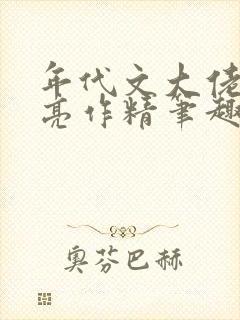 年代文大佬
亮作精笔趣
奥芬巴赫